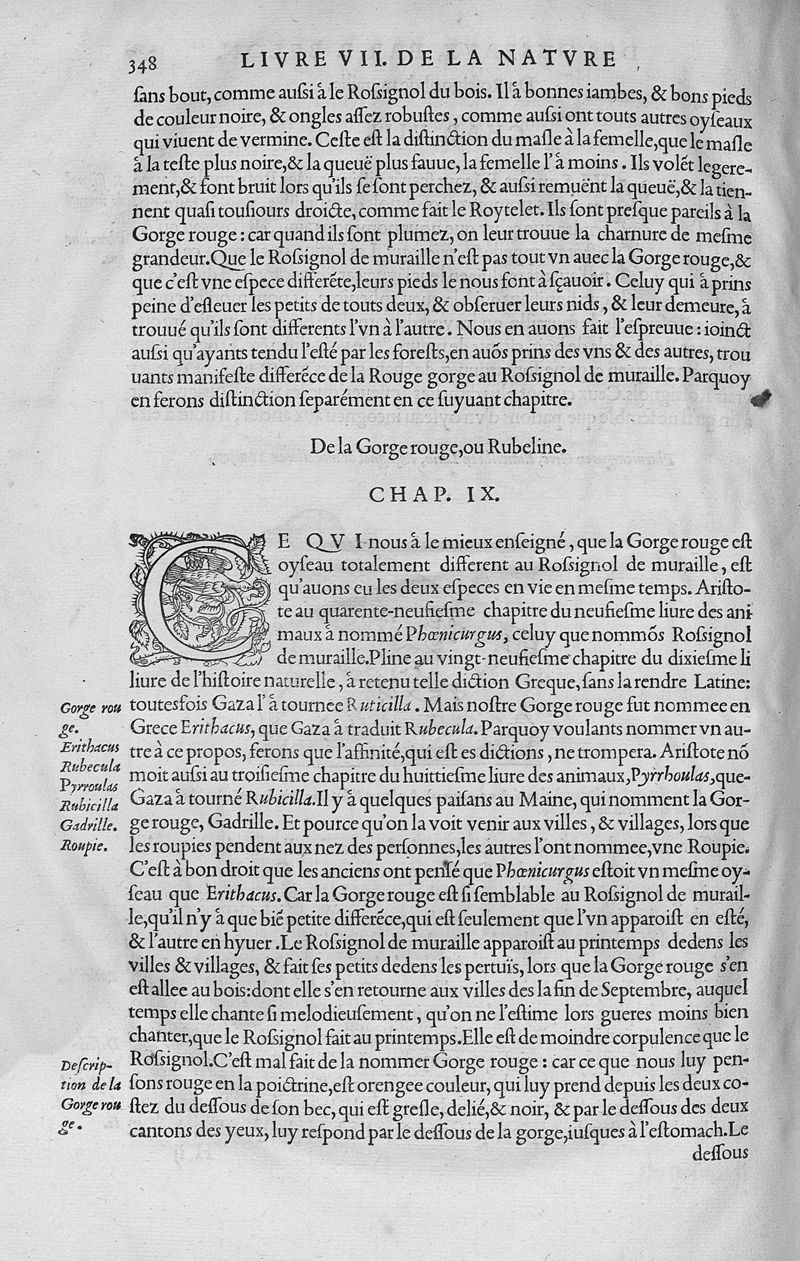 348
LIVRE VII. DE LA NATVRE
ſans bout, comme auſsi à le Roſsignol du bois. Il à bonnes iambes, & bons pieds
de couleur noire, & ongles aſſez robuſtes, comme auſsi ont touts autres oyſeaux
qui viuent de vermine. Ceſte eſt la diſtinction du maſle à la femelle, que le maſle
à la teſte plus noire, & la queuë plus fauue, la femelle l'à moins. Ils volẽt legere-
ment, & font bruit lors qu'ils ſe ſont perchez, & auſsi remuënt la queuë, & la tien-
nent quaſi touſiours droicte, comme fait le Roytelet. Ils ſont preſque pareils à la
Gorge rouge: car quand ils ſont plumez, on leur trouue la charnure de meſme
grandeur. Que le Roſsignol de muraille n'eſt pas tout vn auec la Gorge rouge, &
que c'eſt vne eſpece differẽte, leurs pieds le nous font à ſçauoir. Celuy qui à prins
peine d'eſleuer les petits de touts deux, & obſeruer leurs nids, & leur demeure, à
trouué qu'ils ſont differents l'vn à l'autre. Nous en auons fait l'eſpreuue: ioinct
auſsi qu'ayants tendu l'eſté par les foreſts, en auõs prins des vns & des autres, trou
uants manifeſte differẽce de la Rouge gorge au Roſsignol de muraille. Parquoy
en ferons diſtinction ſeparément en ce ſuyuant chapitre.
De la Gorge rouge, ou Rubeline.
CHAP. IX.
CE QVI nous à le mieux enſeigné, que la Gorge rouge eſt
oyſeau totalement different au Roſsignol de muraille, eſt
qu'auons eu les deux eſpeces en vie en meſme temps. Ariſto-
te au quarente-neufieſme chapitre du neufieſme liure des ani
maux à nommé Phœnicurgus, celuy que nommõs Roſsignol
de muraille. Pline au vingt-neufieſme chapitre du dixieſme li
liure de l'hiſtoire naturelle, à retenu telle diction Greque, ſans la rendre Latine:
toutesfois Gaza l'à tournee Ruticilla. Mais noſtre Gorge rouge fut nommee en
Grece Erithacus, que Gaza à traduit Rubecula. Parquoy voulants nommer vn au-
tre à ce propos, ferons que l'affinité, qui eſt es dictions, ne trompera. Ariſtote nõ
moit auſsi au troiſieſme chapitre du huittieſme liure des animaux, Pyrrhoulas, que-
Gaza à tourné Rubicilla. Il y à quelques paiſans au Maine, qui nomment la Gor-
ge rouge, Gadrille. Et pource qu'on la voit venir aux villes, & villages, lors que
les roupies pendent aux nez des perſonnes, les autres l'ont nommee, vne Roupie.
C'eſt à bon droit que les anciens ont penſé que Phœnicurgus eſtoit vn meſme oy-
ſeau que Erithacus. Car la Gorge rouge eſt ſi ſemblable au Roſsignol de murail-
le, qu'il n'y à que biẽ petite differẽce, qui eſt ſeulement que l'vn apparoiſt en eſté,
& l'autre en hyuer. Le Roſsignol de muraille apparoiſt au printemps dedens les
villes & villages, & fait ſes petits dedens les pertuïs, lors que la Gorge rouge s'en
eſt allee au bois: dont elle s'en retourne aux villes des la fin de Septembre, auquel
temps elle chante ſi melodieuſement, qu'on ne l'eſtime lors gueres moins bien
chanter, que le Roſsignol fait au printemps. Elle eſt de moindre corpulence que le
Roſsignol. C'eſt mal fait de la nommer Gorge rouge: car ce que nous luy pen-
ſons rouge en la poictrine, eſt orengee couleur, qui luy prend depuis les deux co-
ſtez du deſſous de ſon bec, qui eſt greſle, delié, & noir, & par le deſſous des deux
cantons des yeux, luy reſpond par le deſſous de la gorge, iuſques à l'eſtomach. Le
deſſous
Gorge rou
ge.
Erithacus
Rubecula
Pyrroulas
Rubicilla
Gadrille.
Roupie.
Deſcrip-
tion de la
Gorge rou
ge.